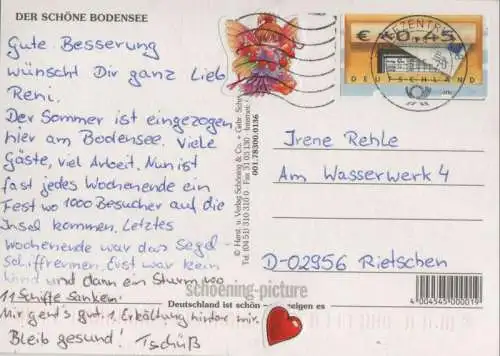 DER SCHÖNE BODENSEE
Gute Besserung
wünscht Dir ganz lieb
Reni.
Der Sommer ist eingezogen
hier am Bodensee. Viele
Gäste, viel Arbeit. Nun ist
fast jedes Wochenende ein
Fest wo 1000 Besucher auf die
Insel kommen. Letztes
Wochenende war das Segel-
Schiffrennen. Erst war kein
Wind und dann ein Sturm wo
11 Schiffe sanken.
Mir geht's gut. 1 Erkältung hinter mir.
Bleib gesund! Tschüß
© Horst. u. Verlag Schöning & Co. + Gebr.
Tel. (04 51) 310 31 0 · Fax 31 03 130 · Internet:
001.78300.0136
€ €0,45
DEUTSCHLAND
BRIEFZENTRUM
Irene Rehle
Am Wasserwerk 4
D-02956 Rietschen
schoening-picture
Deutschland ist schön eigen es
4 004545 000019